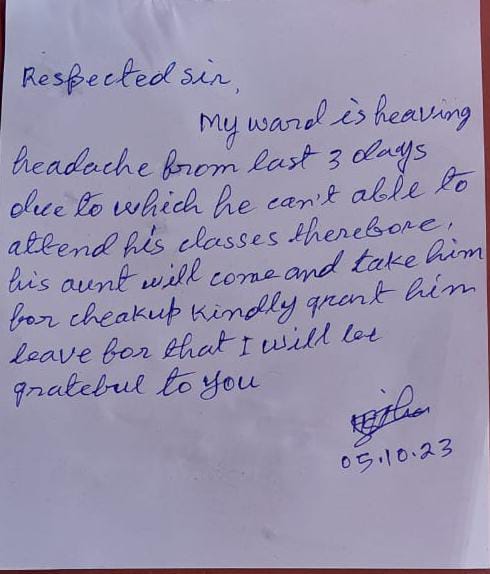 Respected sir,
My ward is heaving
headache from last 3 days
due to which he can't able to
attend his classes therefore,
his aunt will come and take him
for cheakup kindly grant him
leave for that I will be
grateful to you
05.10.23